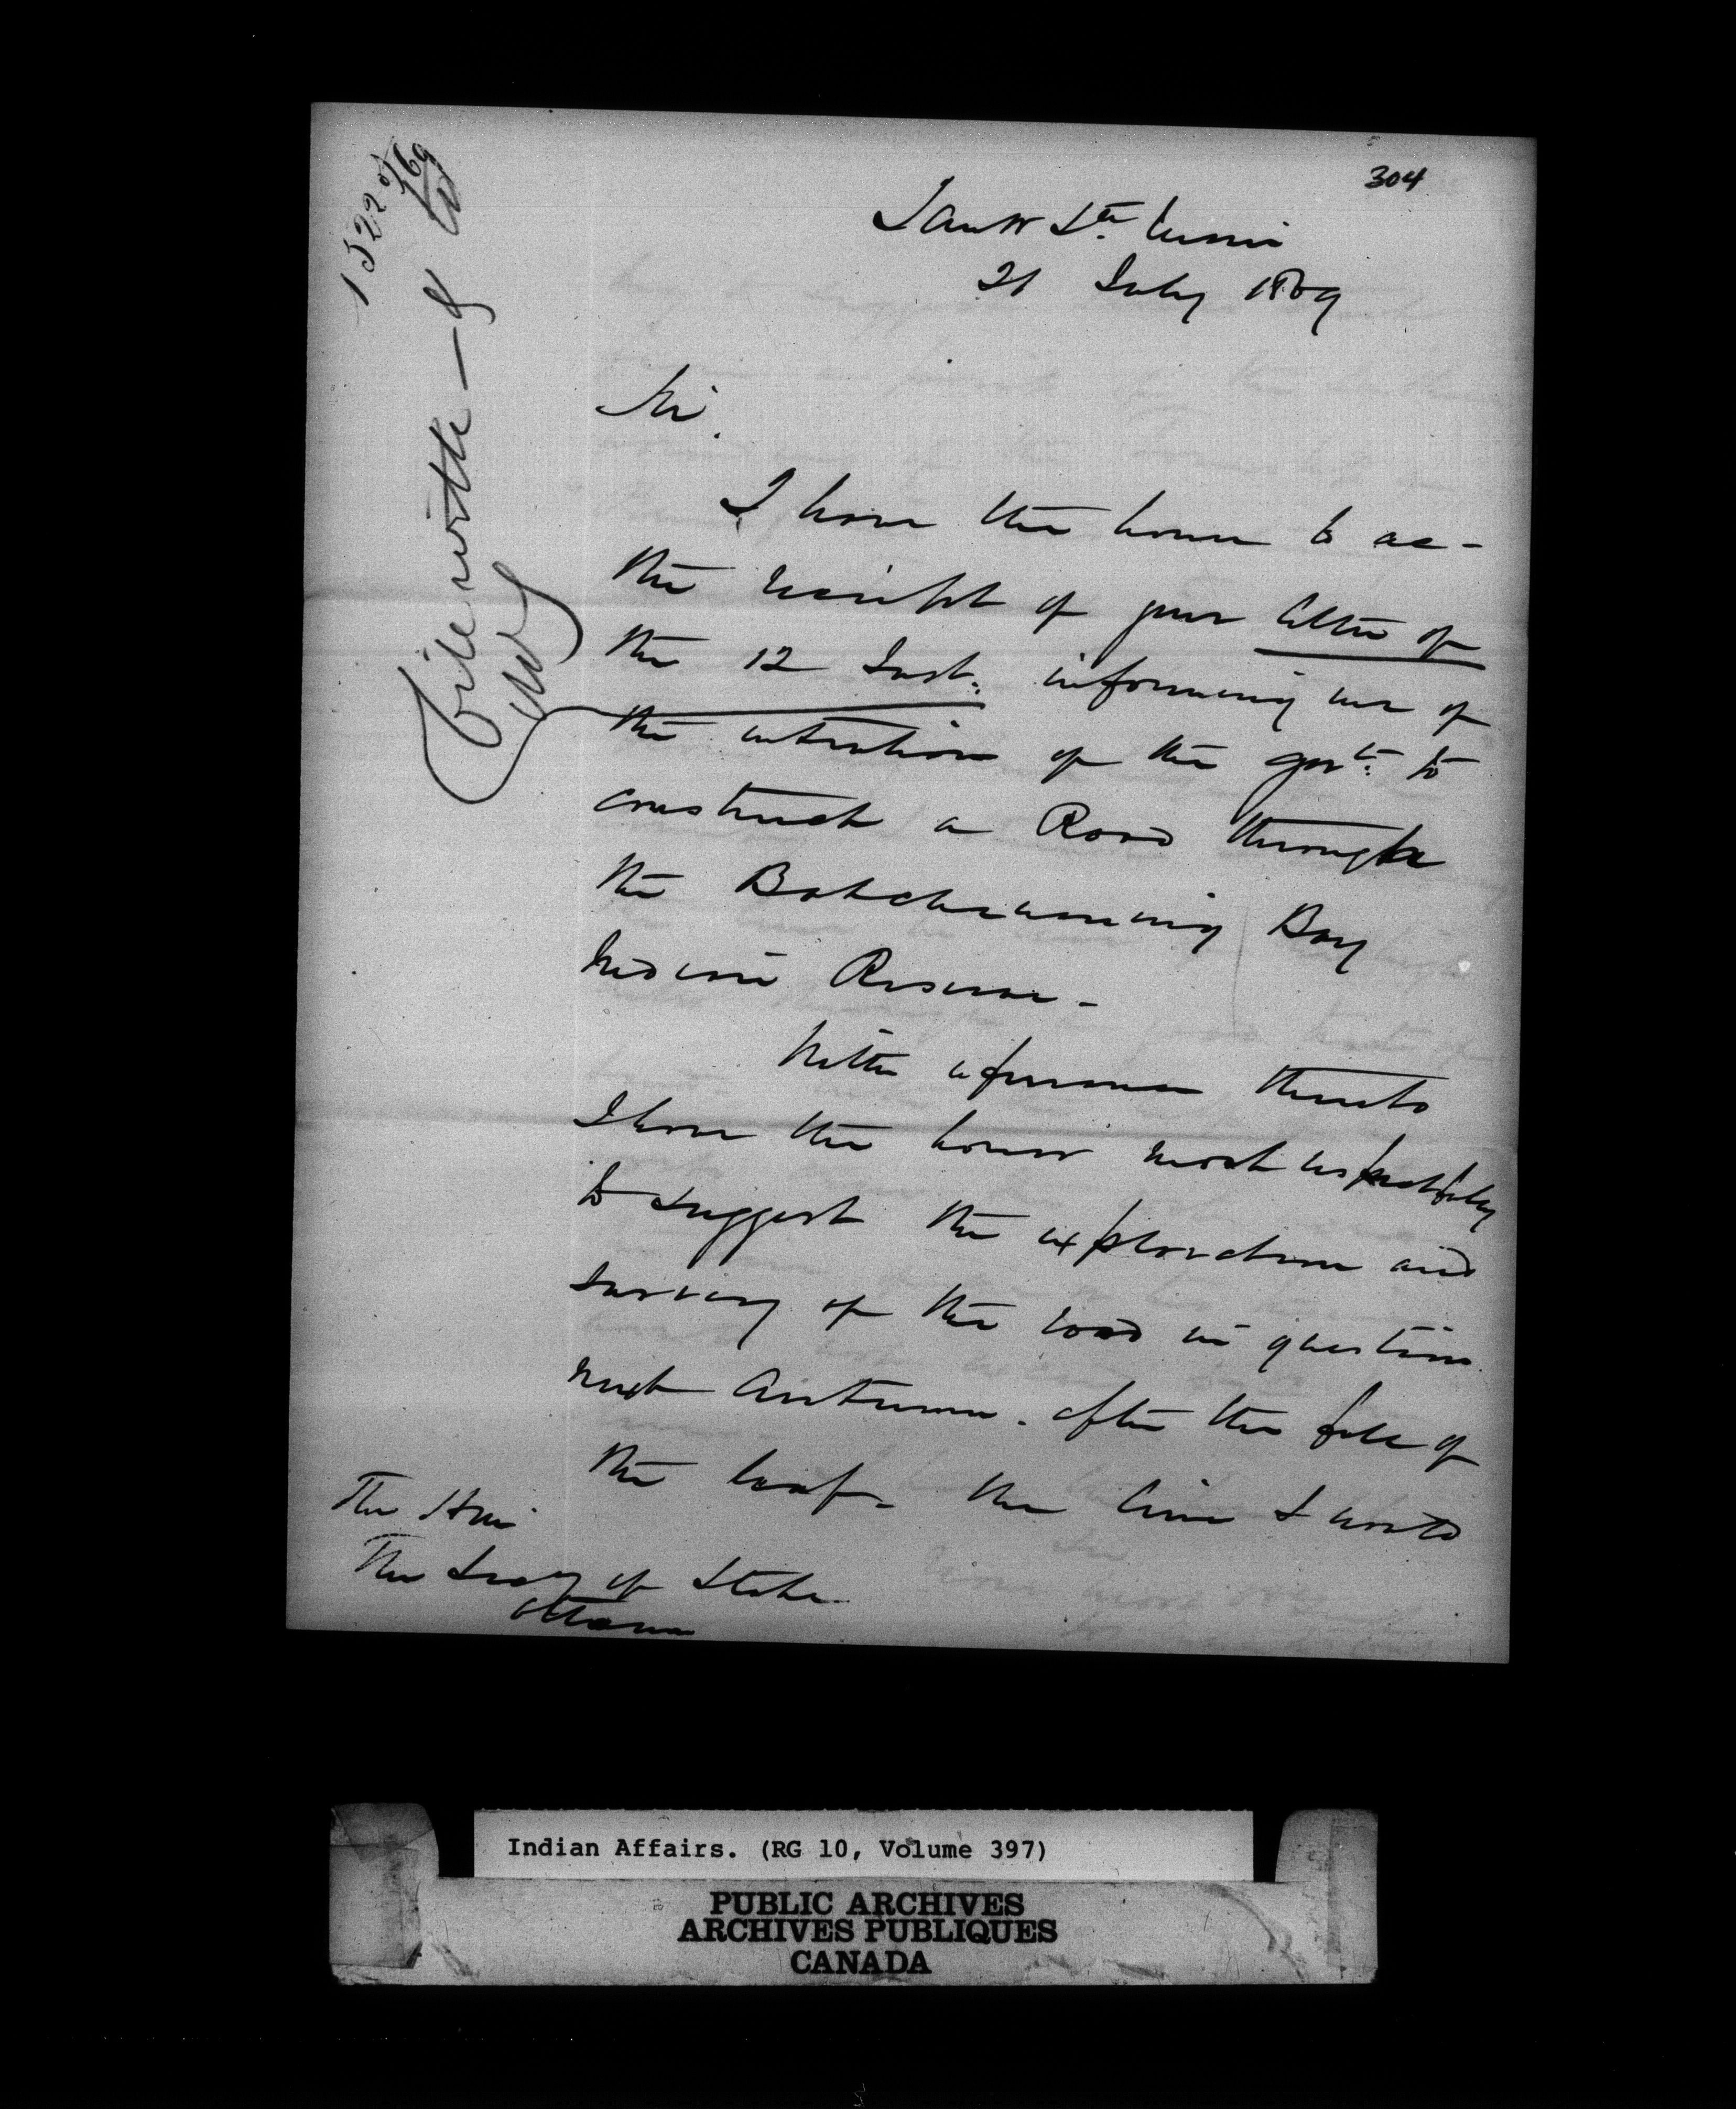 304
1522 of /69
File with
Sault Ste Marie
21 July 1869
Sir.
I have the honor to ac-
the receipt of your letter of
the 12 Inst: informing me of
the intention of the Govt: to
construct a Road through
the Batchewaning Bay
Indian Reserve -
With reference thereto
I have the honor most respectfully
to suggest the exploration and
survey of the road in question
next Autumn. after the fall of
the leaf - the line I would
The Hon
The Secy of State
Ottawa
Indian Affairs. (RG 10, Volume 397)
PUBLIC ARCHIVES
ARCHIVES PUBLIQUES
CANADA